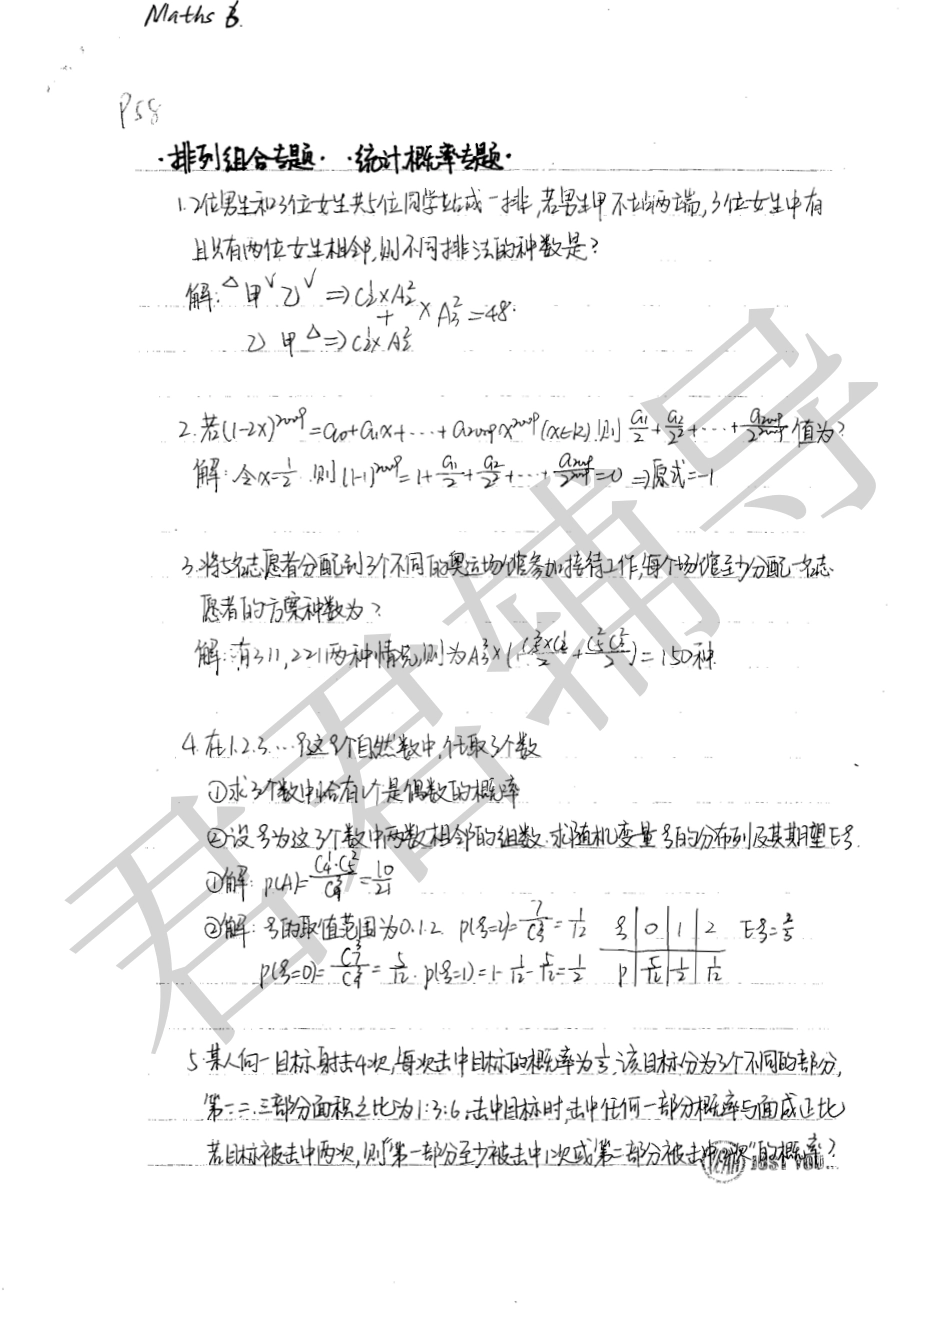 Maths B.
P58
·排列组合专题· ·统计概率专题·
1.2位男生和3位女生共5位同学站成一排,若男生甲不站两端,3位女生中有
且只有两位女生相邻,则不同排法的种数是?
解: △甲√乙√ ⇒C½×A₂²
+ ×A₃²=48.
乙甲△⇒C½×A₂²
2.若(1-2x)²⁰⁰⁹=a₀+a₁x+…+a₂₀₀₉x²⁰⁰⁹(x∈R).则 a₁/2+a₂/2²+…+a₂₀₀₉/2²⁰⁰⁹ 值为?
解:令x=1/2.则(1-1)²⁰⁰⁹=1+a₁/2+a₂/2²+…+a₂₀₀₉/2²⁰⁰⁹=0 ⇒原式=-1
3.将5名志愿者分配到3个不同的奥运场馆参加接待工作,每个场馆至少分配一名志
愿者的方案种数为?
解:有311,221两种情况,则为A₃³×( + )=150种.
4.在1.2.3.…9这9个自然数中,任取3个数
①求3个数中恰有1个是偶数的概率
②设ξ为这3个数中两数相邻的组数.求随机变量ξ的分布列及其期望Eξ.
①解: P(A)=C₄¹·C₅²/C₉³=10/21
②解: ξ的取值范围为0.1.2. P(ξ=2)=7/C₉³=1/12 ξ|0|1|2 Eξ=2/3
P(ξ=0)=C₇³/C₉³=5/12. P(ξ=1)=1-1/12-5/12=1/2 P|5/12|1/2|1/12
5.某人向一目标射击4次,每次击中目标的概率为1/3.该目标分为3个不同的部分,
第一.二.三部分面积之比为1:3:6.击中目标时,击中任何一部分概率与面成正比
若目标被击中两次,则“第一部分至少被击中1次或第二部分被击中2次”的概率?
JUST YOU...
君君辅导